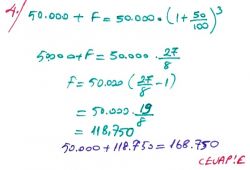 4./ 50.000 + F = 50.000 • (1 + 50/100)³
50000 + F = 50.000 • 27/8
F = 50.000 (27/8 - 1)
= 50.000 • 19/8
= 118,750
50.000 + 118.750 = 168.750
CEVAP: E